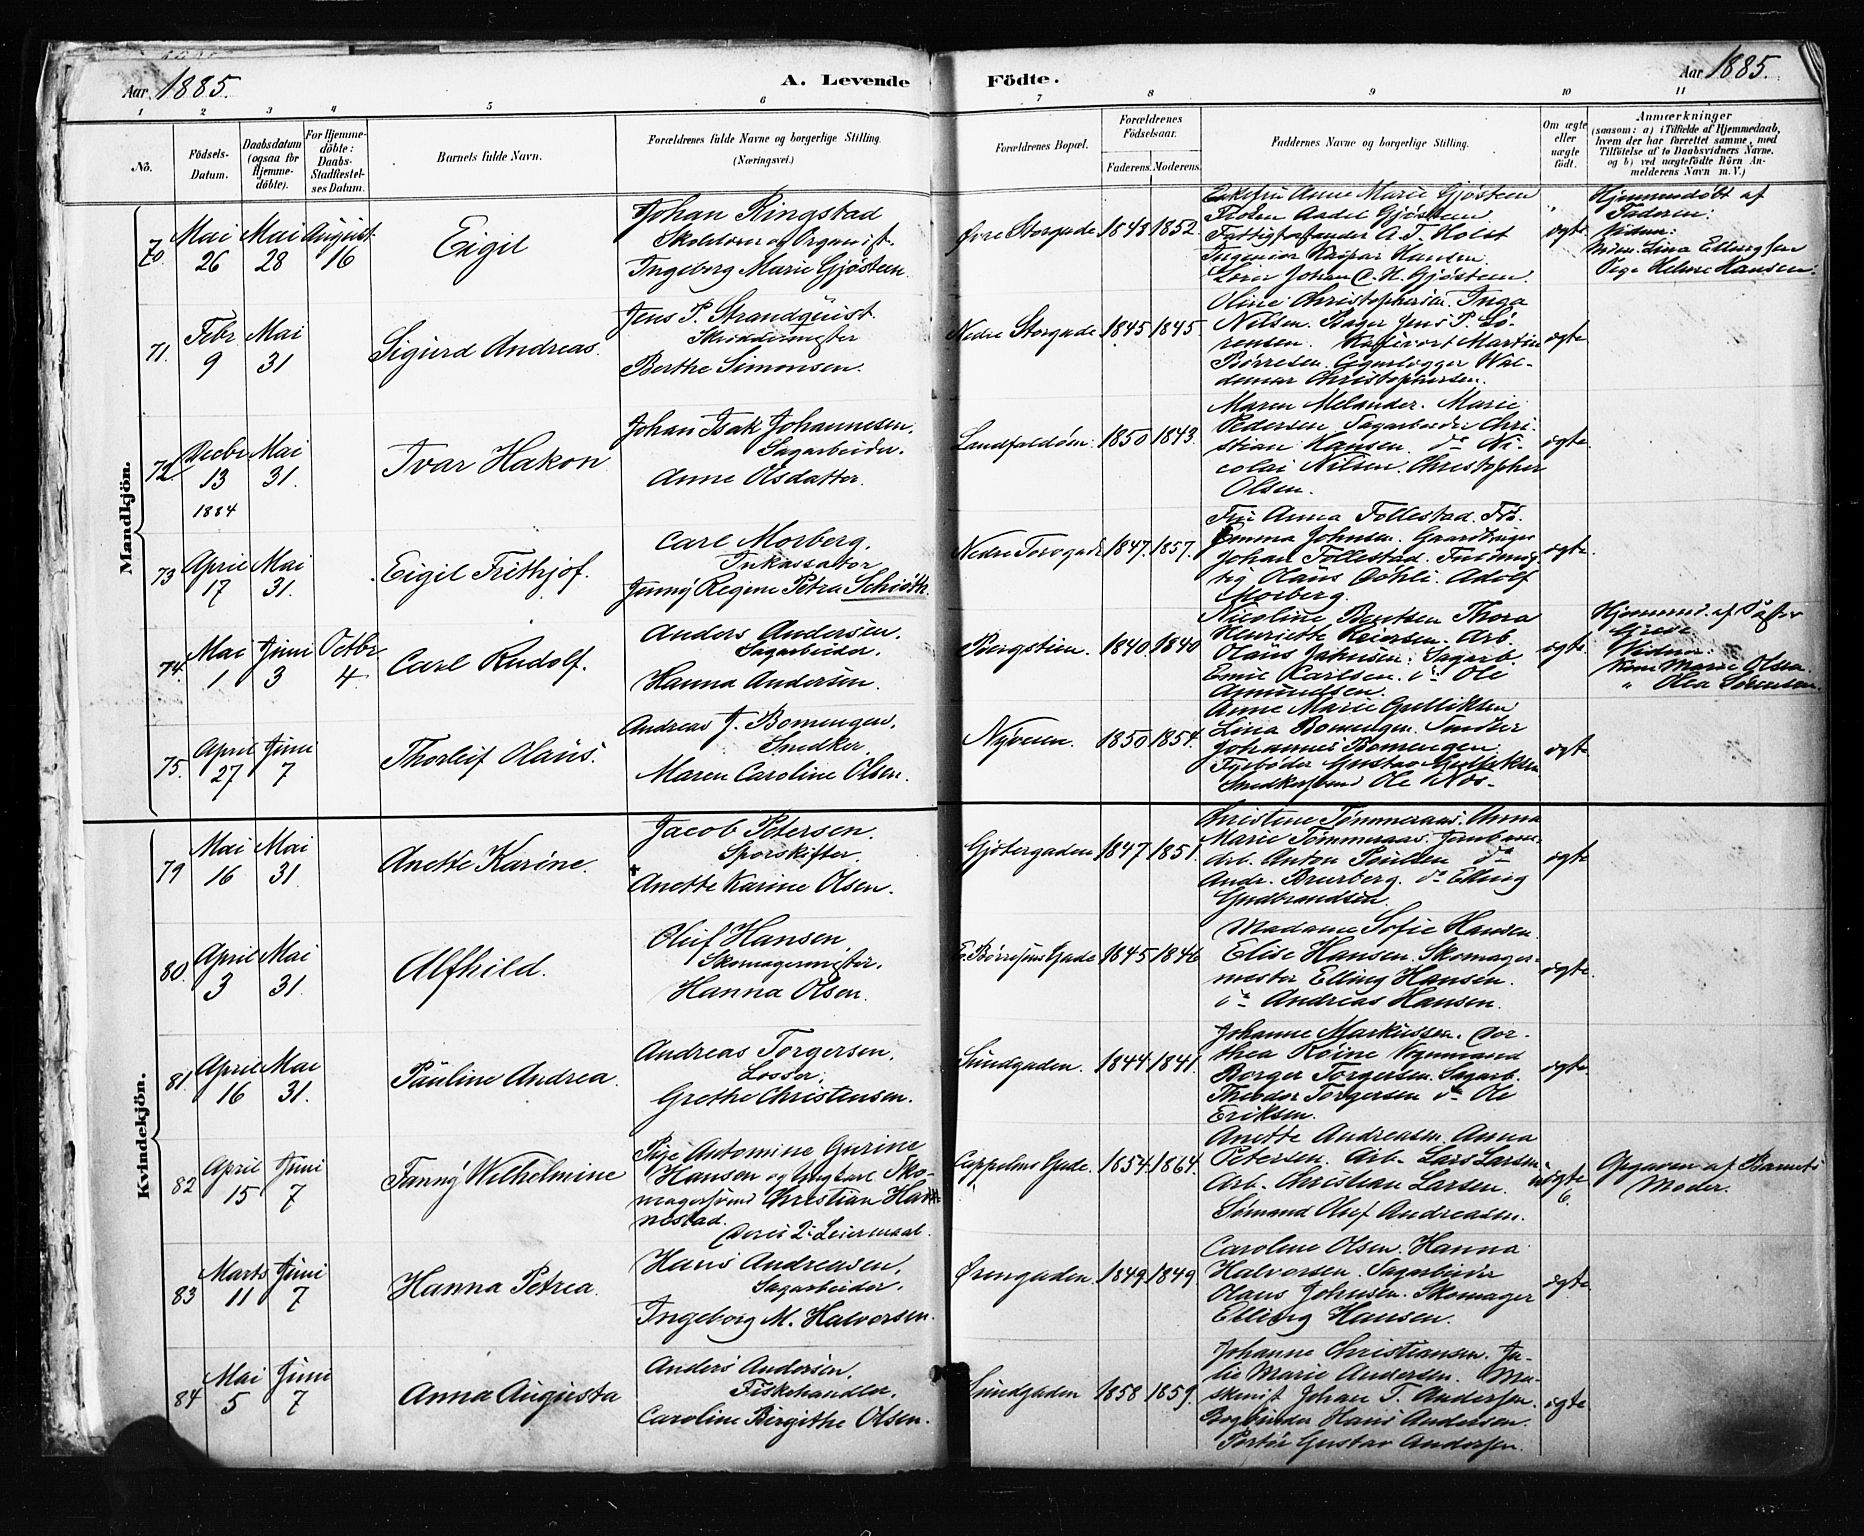 Aar 1885.
A. Levende Födte.
Aar 1885.
1 2 3 4 5 6 7 8 9 10 11
No.
Födsels-Datum.
Daabsdatum (ogsaa for Hjemme-döbte).
For Hjemme-döbte: Daabs-Stadfæstel-ses Datum.
Barnets fulde Navn.
Forældrenes fulde Navne og borgerlige Stilling.
(Næringsvei.)
Forældrenes Bopæl.
Forældrenes Födselsaar.
Faderens. Moderens.
Faddernes Navne og borgerlige Stilling.
Om ægte eller uægte födt.
Anmærkninger
(saasom: a) i Tilfælde af Hjemmedaab, hvem der har forrettet samme, med Tilföielse af to Daabsvidners Navne, og b) ved uægtefödte Börn Anmelderens Navn m. V.)
Mandkjön.
70
Mai 26
Mai 28
August 16
Eigil
Johan Ringstad
Skolelærer og Organist.
Ingeborg Marie Gjøsteen
Øvre Storgade
1848 1852
Anne Marie Gjøsteen
Frøken Gjøsteen
Fattigforstander A. T. Holst
Ingeniør Kaspar Hansen
Lærer Johan C. H. Gjøsteen
ægte
Hjemmedøbt af
Faderen:
Vidner:
Lina Ellingsen
Pige Helene Hansen.
71.
Febr 9
Mai 31
Sigurd Andreas.
Jens P. Strandquist.
Skræddermester
Berthe Simonsen.
Nedre Storgade
1845 1845
Oline Christophersen. Inga
Nilsen. Bager Jens P. Sø-
rensen. Martin
Børresen. Wal-
demar Christophersen.
ægte
72
Decbr 13 1884
Mai 31.
Ivar Hakon
Johan Isak Johannesen.
Sagarbeider.
Anne Olsdatter.
Landfaldøen.
1850 1843.
Maren Melander. Marie
Pedersen. Sagarbeider Chri-
stian Hansen. do Ni-
colai Nilsen. Christopher
Olsen.
ægte.
73
April 17
Mai 31.
Eigil Frithjof.
Carl Morberg.
Inkassator
Jenny Regine Petra Schiøth.
Nedre Torvgade
1847. 1857.
Fru Anna Follestad. Frø.
Emma Johnsen. Gaardbruger
Johan Follestad.
Olaus Døhli. Adolf
Morberg.
ægte.
74
Mai 1
Juni 3
Octbr 4
Carl Rudolf.
Anders Andersen.
Sagarbeider.
Hanna Andersen.
Bergstien.
1840. 1840
Nicoline Bentsen Thora
Henriette Reiersen. Arb.
Olaus Johnsen. Sagarb.
Emil Karlsen. do Ole
Amundsen.
ægte.
Vidner:
Marie Olsen.
" Olea Sørensen.
75.
April 27
Juni 7
Thorleif Olaus.
Andreas J. Bomengen.
Snedker.
Maren Caroline Olsen.
Nyveien.
1850 1854.
Anne Marie Gulliksen
Lina Bomengen. Snedker
Johannes Bomengen.
Fyrbøder Gustav Gulliksen
Snedkersvend Ole Næs.
ægte.
Kvindekjön.
79
Mai 16
Mai 31.
Anette Karine.
Jacob Petersen.
Sporskifter.
Anette Karine Olsen.
Gjetergaden
1847. 1851.
Christine Tømmeraas. Anna
Marie Tømmeraas. Jernbane-
arb. Anton Poulsen do
Andr. Bruerberg. do Elling
Gudbrandsen.
ægte
80.
April 3
Mai 31.
Alfhild.
Oluf Hansen
Skomagermester.
Hanna Olsen.
E. Børresens Gade
1845 1846
Madame Sofie Hansen.
Elise Hansen. Skomager-
mester Elling Hansen.
do Andreas Hansen.
ægte.
81
April 16
Mai 31.
Pauline Andrea.
Andreas Torgersen.
Losser.
Grethe Christensen.
Sundgaden.
1844. 1841.
Johanne Markussen. Dor-
thea Røine Vognmand
Borger Torgersen. Sagarb.
Theodor Torgersen do Ole
Eriksen.
ægte.
82
April 15
Juni 7
Fanny Wilhelmine
Pige Antomine Gurine
Hansen og Ungkarl Sko-
magersvend Christian Har-
nestad.
Deres 2. Leiermaal.
Cappelens Gade.
1854. 1864.
Anette Andreasen. Anna
Petersen. Arb. Lars Larsen
Arb. Christian Larsen.
Sømand Oluf Andreasen.
uægte
Opgaven af Barnets
Moder.
83
Marts 11
Juni 7
Hanna Petrea.
Hans Andreasen.
Sagarbeider.
Ingeborg M. Halvorsen.
Ørengaden.
1849. 1849.
Caroline Olsen. Hanna
Halvorsen. Sagarbeider
Olaus Johnsen. Skomager
Elling Hansen.
ægte.
84
Mai 5
Juni 7
Anna Augusta
Anders Andersen.
Fiskehandler.
Caroline Birgithe Olsen.
Sundgaden
1858 1859.
Johanne Christiansen. Ju-
lie Marie Andersen. Ma-
skinist Johan T. Andersen.
Bogbinder Hans Andersen.
Portør Gustav Andersen.
ægte